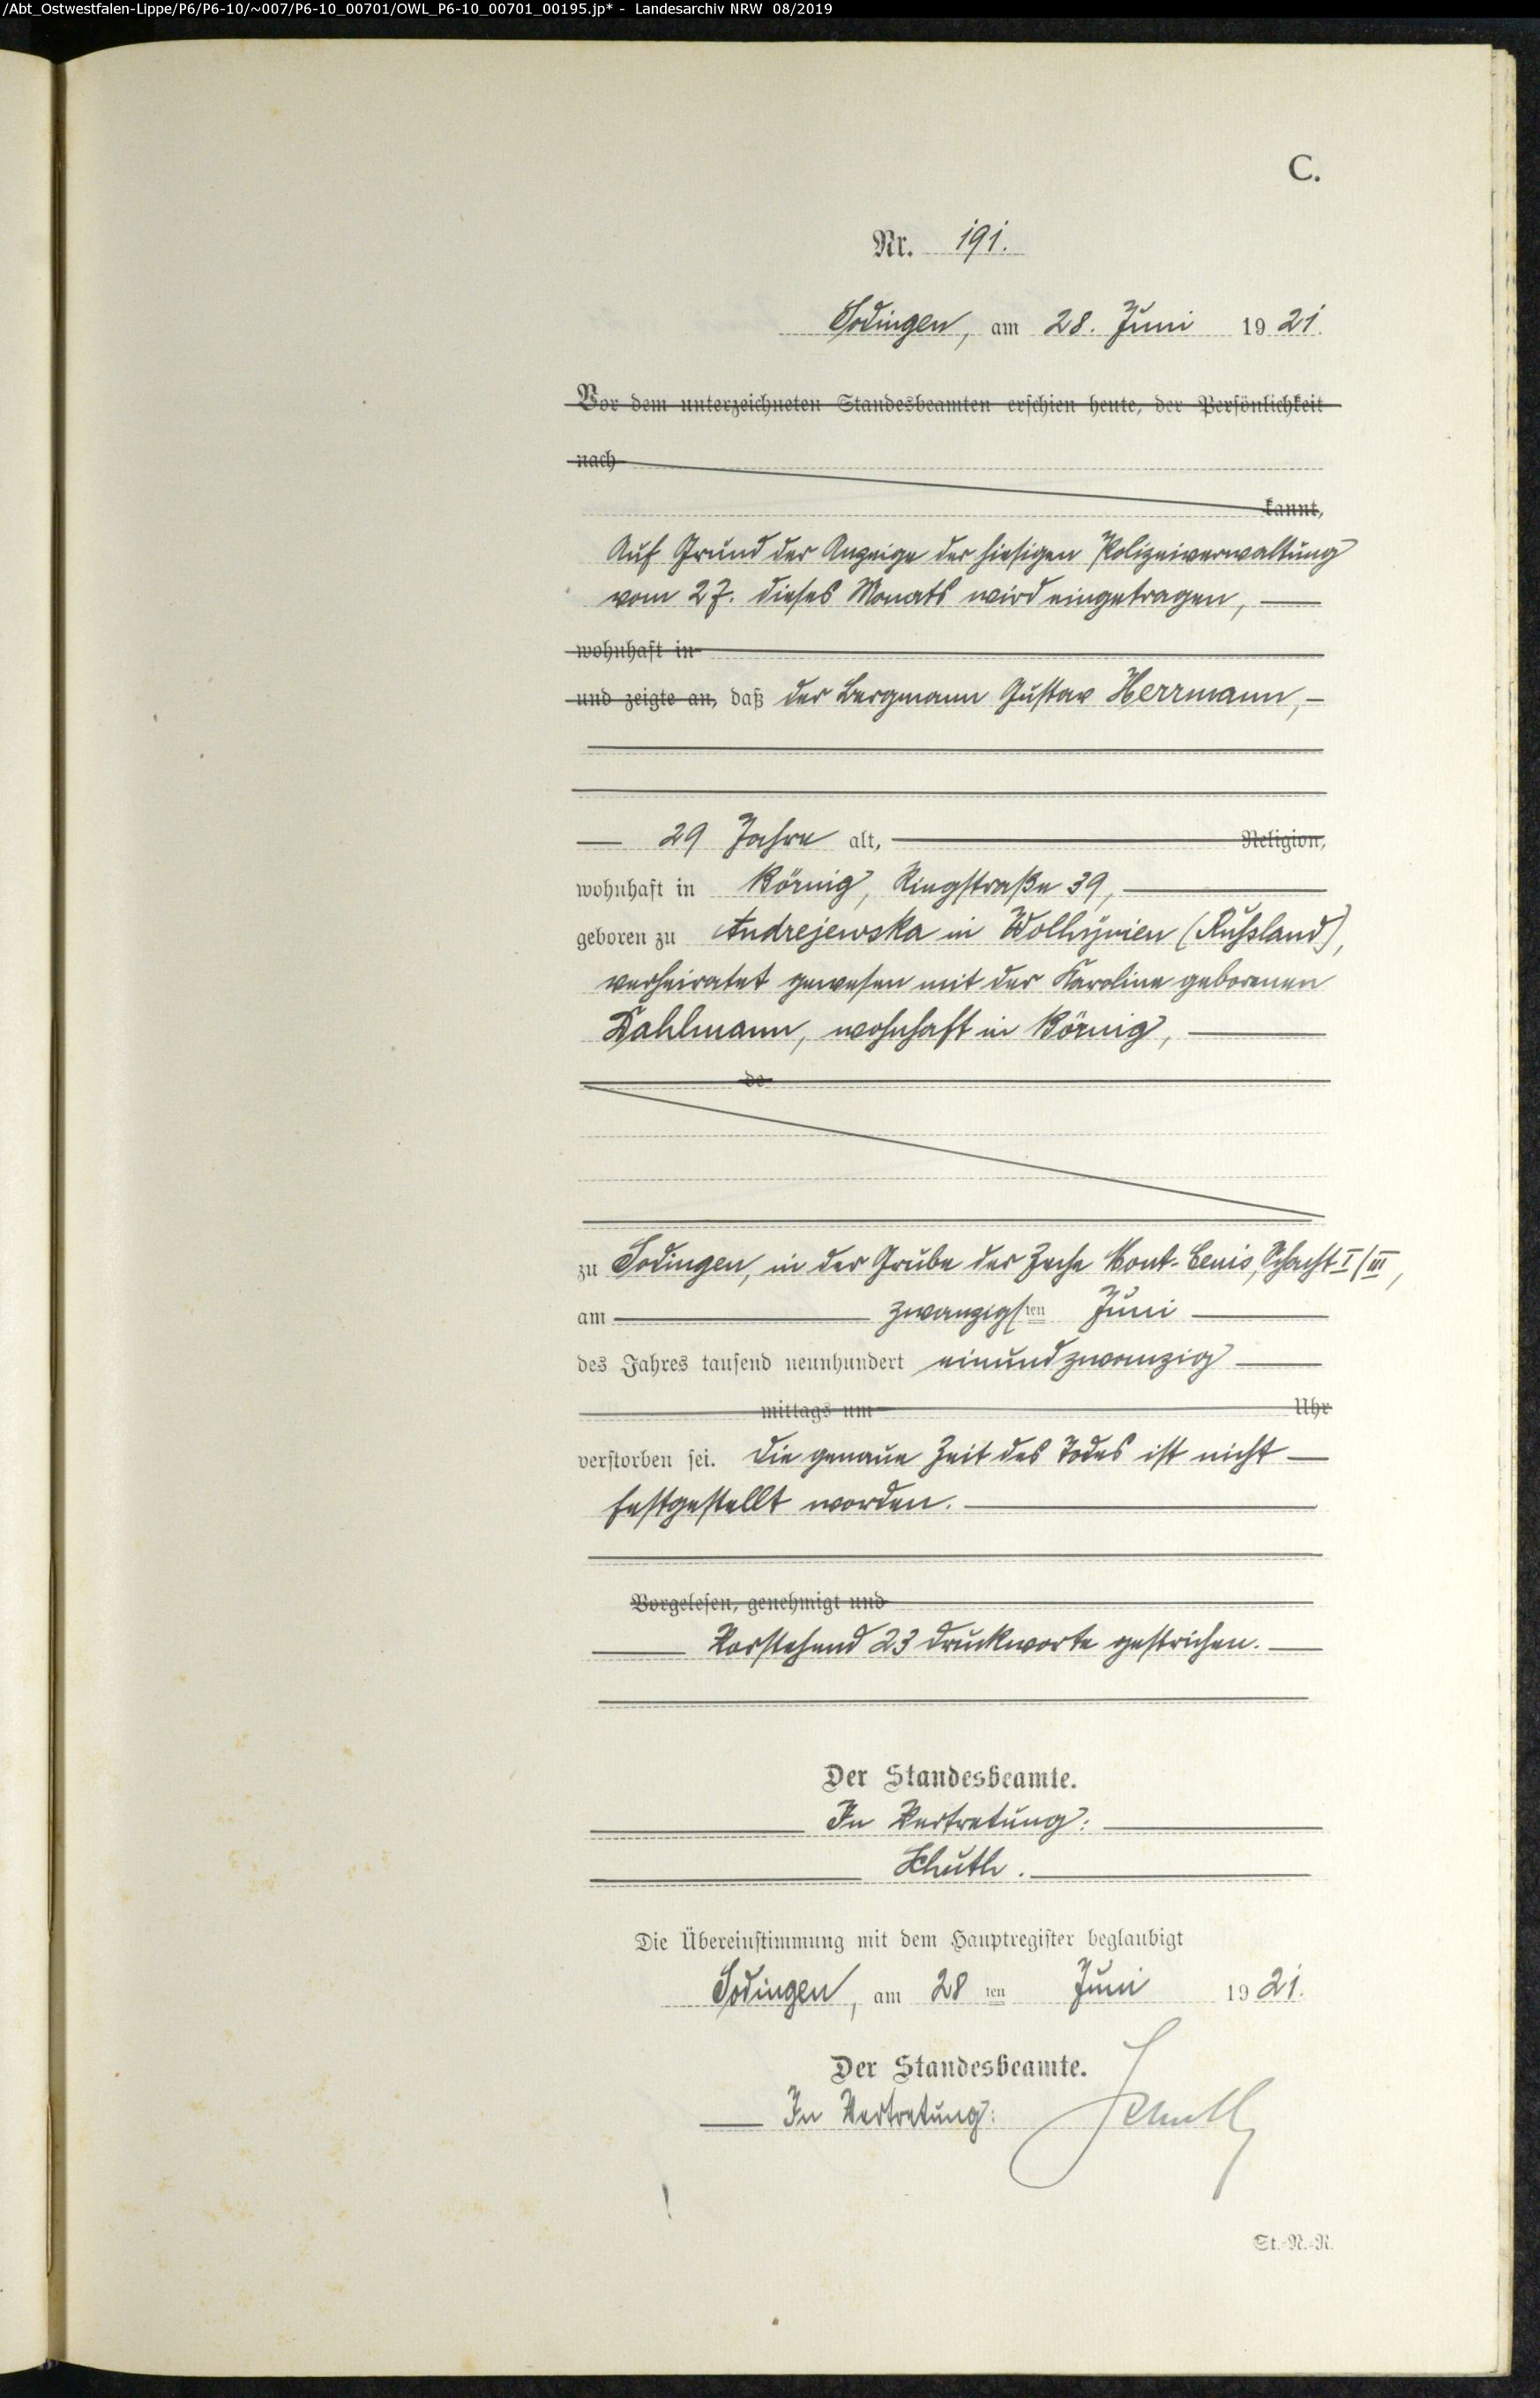 /Abt_Ostwestfalen-Lippe/P6/P6-10/~007/P6-10_00701/OWL_P6-10_00701_00195.jp* - Landesarchiv NRW 08/2019
C.
Nr. 191.
Sodingen, am 28. Juni 1921.
Vor dem unterzeichneten Standesbeamten erschien heute, der Persönlichkeit
nach
kannt,
Auf Grund der Anzeige der hiesigen Polizeiverwaltung
vom 27. dieses Monats wird eingetragen,
wohnhaft in
und zeigte an, daß der Bergmann Gustav Herrmann,
29 Jahre alt, Religion,
wohnhaft in Börnig, Ringstraße 39,
geboren zu Andrejewska in Wolhynien (Russland),
verheiratet gewesen mit der Karoline geborenen
Dahlmann, wohnhaft in Börnig,
de
zu Sodingen, in der Grube der Zeche Mont-Cenis, Schacht I/III,
am zwanzigsten Juni
des Jahres tausend neunhundert einundzwanzig
mittags um Uhr
verstorben sei. Die genaue Zeit des Todes ist nicht
festgestellt worden.
Vorgelesen, genehmigt und
Vorstehend 23 Druckworte gestrichen.
Der Standesbeamte.
In Vertretung:
Schuth.
Die Übereinstimmung mit dem Hauptregister beglaubigt
Sodingen, am 28ten Juni 1921.
Der Standesbeamte.
In Vertretung: Schuth
St.-N.-R.